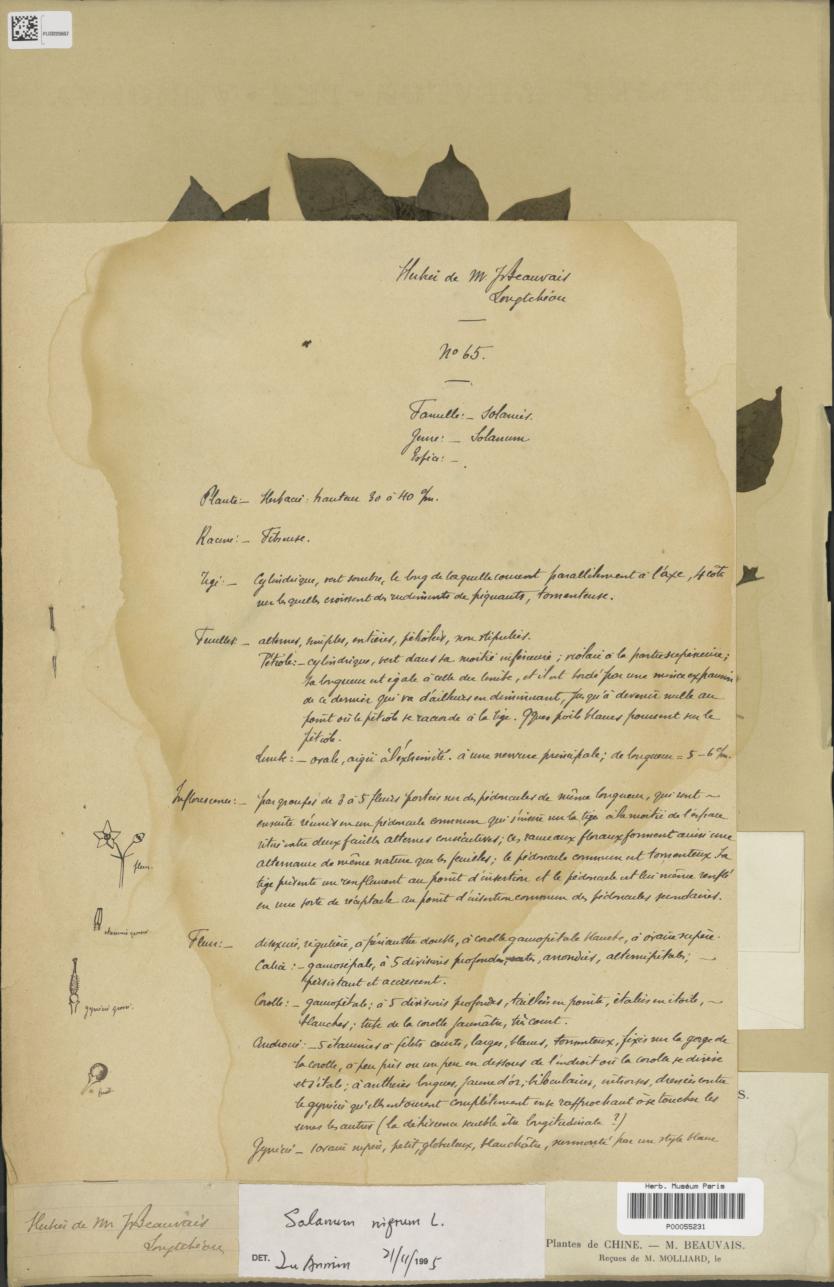 de M. J. Beauvais
Longtchéou
No 65.
Famille: — Solanées.
Genre: — Solanum
Espèce: — .
Plante: — Herbacée: hauteur 30 à 40 c/m.
Racine: — Fibreuse.
Tige: — Cylindrique, vert sombre, le long de laquelle courent parallèlement à l'axe, 4 côtes
sur lesquelles croissent des rudiments de piquants, tomenteuse.
Feuilles: — alternes, simples, entières, pétiolées, non stipulées.
Pétiole: — cylindrique, vert dans sa moitié inférieure; violacé à la partie supérieure;
sa longueur est égale à celle du limbe, et il est bordé par une mince expansion
de ce dernier qui va d'ailleurs en diminuant, jusqu'à devenir nulle au
point où le pétiole se raccorde à la tige. Qques poils blancs poussent sur le
pétiole.
Limbe: — ovale, aigü à l'extrémité. à une nervure principale; de longueur = 5 – 6 c/m.
Inflorescence: — par groupes de 3 à 5 fleurs portées sur des pédoncules de même longueur, qui sont —
ensuite réunis en un pédoncule commun qui s'insère sur la tige à la moitié de l'espace
situé entre deux feuilles alternes consécutives; ces rameaux floraux forment ainsi une
alternance de même nature que les feuilles; le pédoncule commun est tomenteux. La
tige présente un renflement au point d'insertion et le pédoncule est lui même renflé
en une sorte de réceptacle au point d'insertion commun des pédoncules secondaires.
Fleur: — bisexuée, régulière, à périanthe double, à corolle gamopétale blanche, à ovaire supère.
Calice: — gamosépale, à 5 divisions profondes, arrondies, alternipétales; —
persistant et accrescent.
Corolle: — gamopétale; à 5 divisions profondes, taillées en pointe, étalées en étoile, —
blanches; tube de la corolle jaunâtre, très court.
Androcée: — 5 étamines à filets courts, larges, blancs, tomenteux, fixés sur la gorge de
la corolle, à peu près ou un peu en dessous de l'endroit où la corolle se divise
et s'étale; à anthères longues, jaune d'or, biloculaires, introrses, dressées contre
le gynécée qu'elles entourent complètement en se rapprochant à se toucher les
unes les autres (la déhiscence semble être longitudinale ?)
Gynécée — 1 ovaire supère, petit, globuleux, blanchâtre, surmonté par un style blanc
fleur.
étamine grossie
gynécée grossi.
fruit
de M. J. Beauvais
Longtchéou
Solanum nigrum L.
DET. 21/11/1995
Herb. Muséum Paris
P00055231
S.
Plantes de CHINE. — M. BEAUVAIS.
Reçues de M. MOLLIARD, le